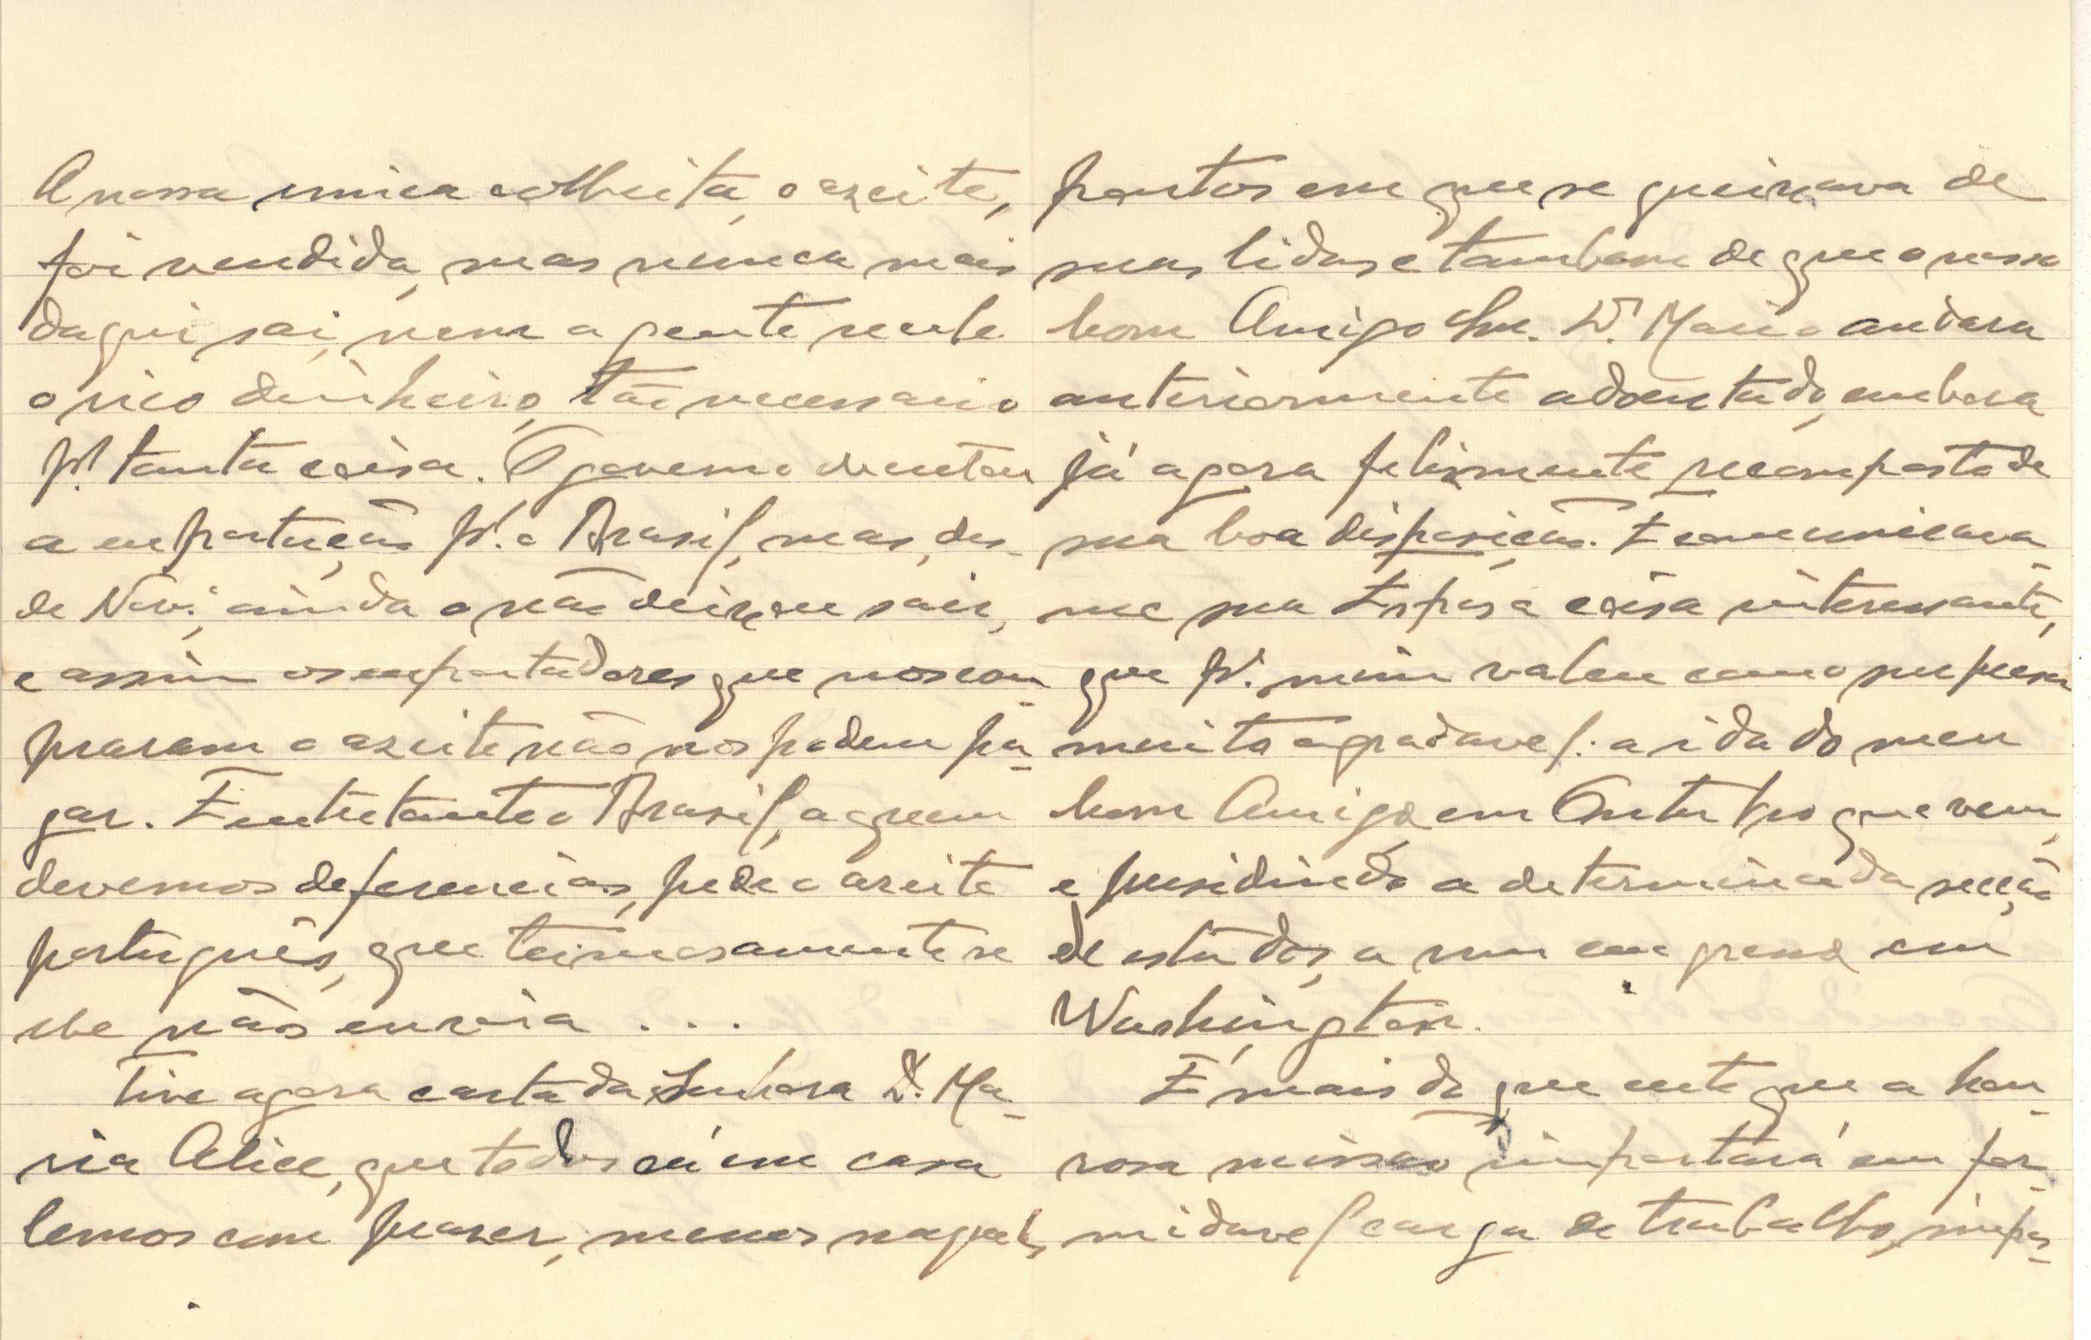 A nossa unica colheita, o azeite,
foi vendida, mas nunca mais
daqui sai, nem a gente recebe
o rico dinheiro, tão necessario
p.ª tanta coisa. O governo decretou
a exportação p.ª o Brasil, mas, des-
de Nov.º, ainda o não deixou sair,
e assim os exportadores que nos com-
praram o azeite não nos podem pa-
gar. Entretanto o Brasil, a quem
devemos deferencias, pede o azeite
português, que teimosamente se
lhe não envia ...
Tive agora carta da Senhora D. Ma-
ria Alice, que todos cá em casa
lemos com prazer, menos naqueles
pontos em que se queixava de
suas lidas e tambem de que o nosso
bom Amigo Snr. Dr. Mario andara
anteriormente adoentado, embora
já agora felismente recomposto de
sua boa disposição. E comunicava-
me sua Esposa coisa interessante,
que p.ª mim valeu como surpresa
muito agradavel: a ida do meu
bom Amigo, em Outubro que vem,
e presidindo a determinada secção
de estudos, a um congresso em
Washington.
É mais do que certo que a hon-
rosa missão importará em for-
midavel carga de trabalho, impos-